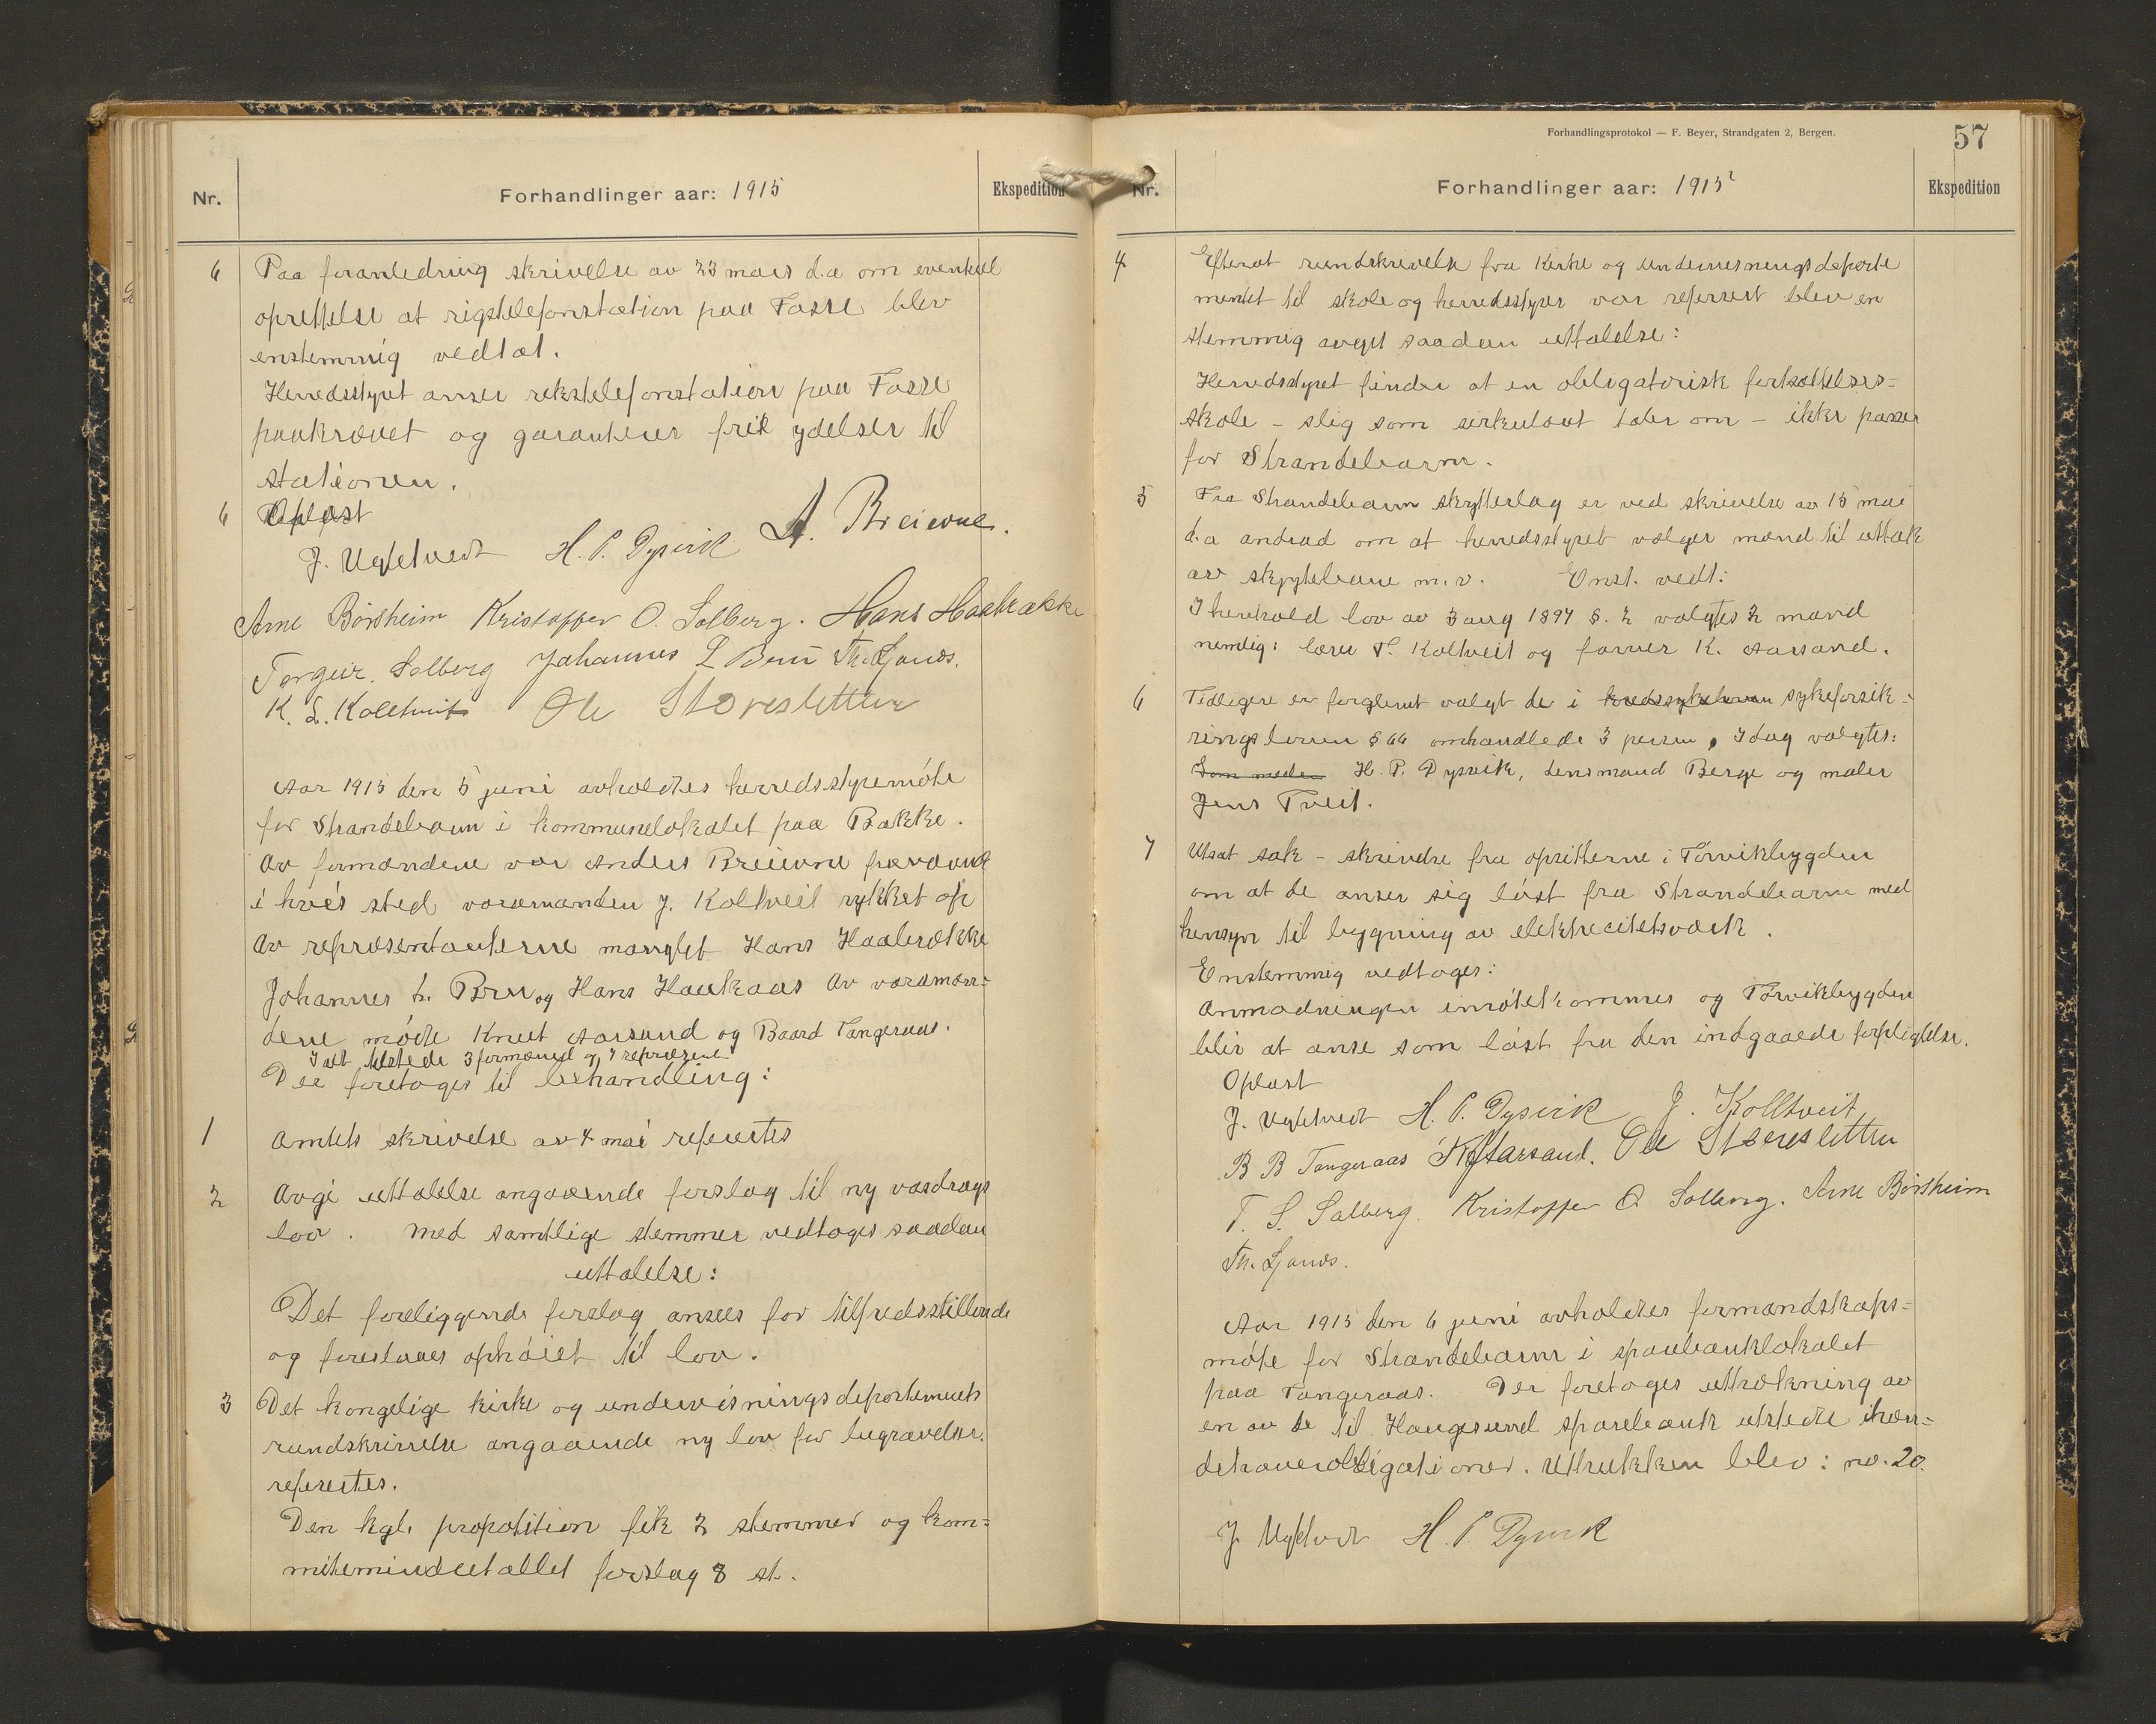 Nr.
Forhandlinger aar: 1915
Ekspedition
6 Paa foranledning skrivelse av 23 mars d.a om eventuel
oprettelse at rigstelefonstation paa Fosse blev
enstemmig vedtat.
Herredsstyret anser rikstelefonstation paa Fosse
paakrævet og garanterer frie ydelser til
stationen.
6 Oplæst
J. Ugletveit H. P. Dysvik A. Breievne.
Arne Børsheim Kristoffer O. Solberg. Hans Haabrække
Torgeir. Solberg Johannes L Bru Th. Ljones.
K. L. Kolltveit Ole Storesletten
Aar 1915 den 5 juni avholdtes herredsstyremöte
for Strandebarm i kommunelokalet paa Bakke.
Av formændene var Anders Breievne fraværende
i hvis sted varamanden J. Koltveit rykket op
Av repræsentanterne manglet Hans Haabrække
Johannes L. Bru og Hans Haukaas Av varamæn-
dene mødte Knut Aarsand og Baard Tangeraas.
Ialt tilstede 3 formænd og 7 repræsent
Der foretoges til behandling:
1 Amtets skrivelse av 4 mai refertes
2 Avgi uttalelse angaaende forslag til ny vasdrags
lov. Med samtlige stemmer vedtoges saadan
uttalelse:
Det foreliggende forslag ansees for tilfredsstillende
og foreslaaes ophöiet til lov.
3 Det kongelige kirke og undervisningsdepartements
rundskrivelse angaaende ny lov for begravelser.
refertes.
Den kgl. propotition fik 2 stemmer og kom-
mitemindretallet forslag 8 st.
Forhandlingsprotokol — F. Beyer, Strandgaten 2, Bergen.
57
Nr.
Forhandlinger aar: 1915
Ekspedition
4 Efterat rundskrivelse fra Kirke og undervisningsdeparte
mentet til skole og herredsstyrer var referert blev en
stemmig avgit saadan uttalelse:
Herredsstyret finder at en obligatorisk fortsættelses-
skole - slig som sirkulært taler om - ikke passer
for Strandebarm.
5 Fra Strandebarm skytterlag er ved skrivelse av 15 mai
d.a andrad om at herredsstyret vælger mænd til uttak
av skytebane m.v. Enst. vedt:
I henhold lov av 3 aug 1897 §. 2 valgtes 2 mænd
nemlig: lærer T. Koltveit og forver K. Aarsand.
6 Tidligere er forglemt valgt de i kredssykeloven sykeforsik-
ringsloven § 66 omhandlede 3 person, Idag valgtes:
Som meder H. P. Dysvik, Lensmand Berge og maler
Jens Tveit.
7 Utsat sak - skrivelse fra opsitterne i Törvikbygden
om at de anser sig löst fra Strandebarm med
hensyn til bygning av elektrecitetsværk.
Enstemmig vedtoges:
Anmodningen imötekommes og Törvikbygden
blir at anse som löst fra den indgaaede forpligtelse.
Oplæst
J. Ugletveit H. P. Dysvik J. Kolltveit
B B Tangeraas K Aarsand. Ole Storesletten
T. S. Solberg. Kristoffer O Solberg. Arne Børsheim
Th. Ljones.
Aar 1915 den 6 juni avholdtes formandskaps-
möte for Strandebarm i sparebanklokalet
paa Tangeraas. Der foretoges uttrækning av
en av de til Haugesund sparebank utstedte ihæn-
dehaverobligationer. Uttrukken blev: no. 20.
J. Ugletveit H. P. Dysvik